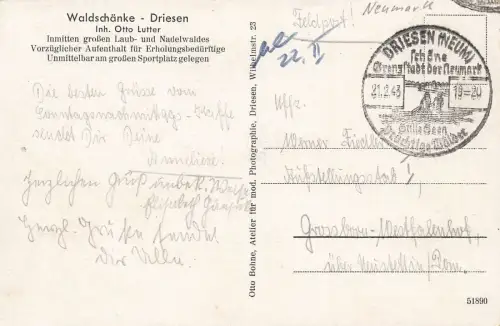 Waldschänke - Driesen
Inh. Otto Lutter
Inmitten großen Laub- und Nadelwaldes
Vorzüglicher Aufenthalt für Erholungsbedürftige
Unmittelbar am großen Sportplatz gelegen
Die besten Grüsse vom
Sonntagsnachmittags-Kaffe
sendet Dir Deine
Anneliese.
Herzlichen Gruß unbek.
Elisabeth
Herzl. Grüße sendet
Dir
Otto Bohne, Atelier für mod. Photographie, Driesen, Wilhelmstr. 23
Feldpost!
Neumark
22. II
DRIESEN (NEUM)
Schöne
Grenzstadt der Neumark
21.2.43
19-20
Stille Seen
Prächtige Wälder
Uffz.
Werner Fiedler
Aufstellungsstab!
Grossborn-Westfalenhof,
über Neustettin/Pom.
51890